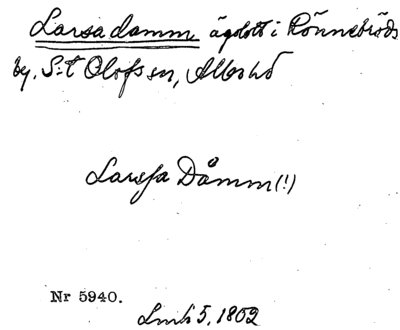 Larsadamm ägolott i Rönneröds
by. S:t Olofs sn, Albo hd
Larssa Dåmm (!)
Nr 5940.
Lmh 5, 1802